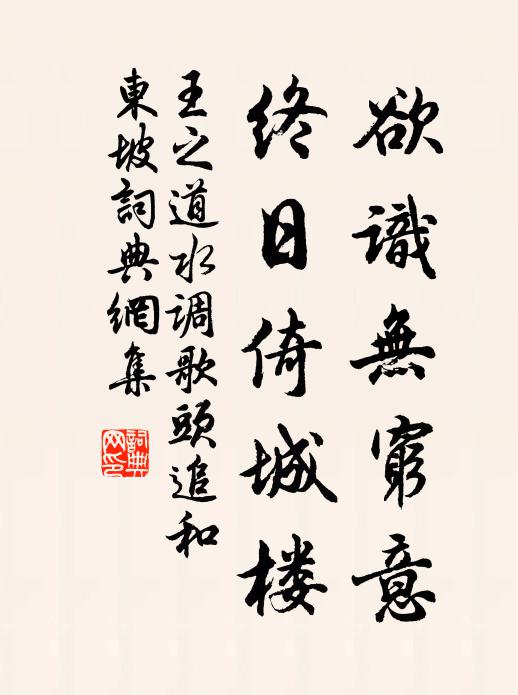 欲識無窮意
終日倚城楼
王之道水调歌頭追和
東坡詞典網集
詞典网印